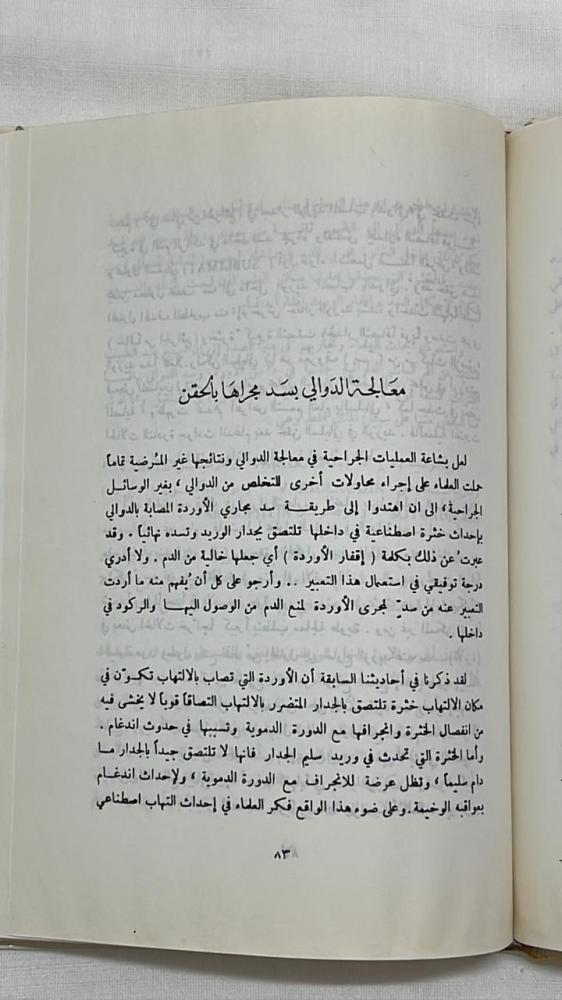 معالجة الدوالي بسد مجراها بالحقن
لعل بشاعة العمليات الجراحية في معالجة الدوالي ونتائجها غير المُرضية تماماً
حملت العلماء على إجراء محاولات أخرى للتخلص من الدوالي ، بغير الوسائل
الجراحية ، الى ان اهتدوا إلى طريقة سد مجاري الأوردة المصابة بالدوالي
بإحداث خثرة اصطناعية في داخلها تلتصق بجدار الوريد وتسده نهائياً . وقد
عبرتُ عن ذلك بكلمة ( إقفار الأوردة ) أي جعلها خالية من الدم . ولا أدري
درجة توفيقي في استعمال هذا التعبير .. وأرجو على كل أن يُفهم منه ما أردت
التعبير عنه من سدٍّ لمجرى الأوردة لمنع الدم من الوصول اليها والركود في
داخلها .
لقد ذكرنا في أحاديثنا السابقة أن الأوردة التي تصاب بالالتهاب تكوّن في
مكان الالتهاب خثرة تلتصق بالجدار المتضرر بالالتهاب التصاقاً قوياً لا يخشى فيه
من انفصال الخثرة وانجرافها مع الدورة الدموية وتسببها في حدوث اندغام .
وأما الخثرة التي تحدث في وريد سليم الجدار فانها لا تلتصق جيداً بالجدار ما
دام سليماً ، وتظل عرضة للانجراف مع الدورة الدموية ، ولإحداث اندغام
بعواقبه الوخيمة . وعلى ضوء هذا الواقع فكر العلماء في إحداث التهاب اصطناعي
٨٣